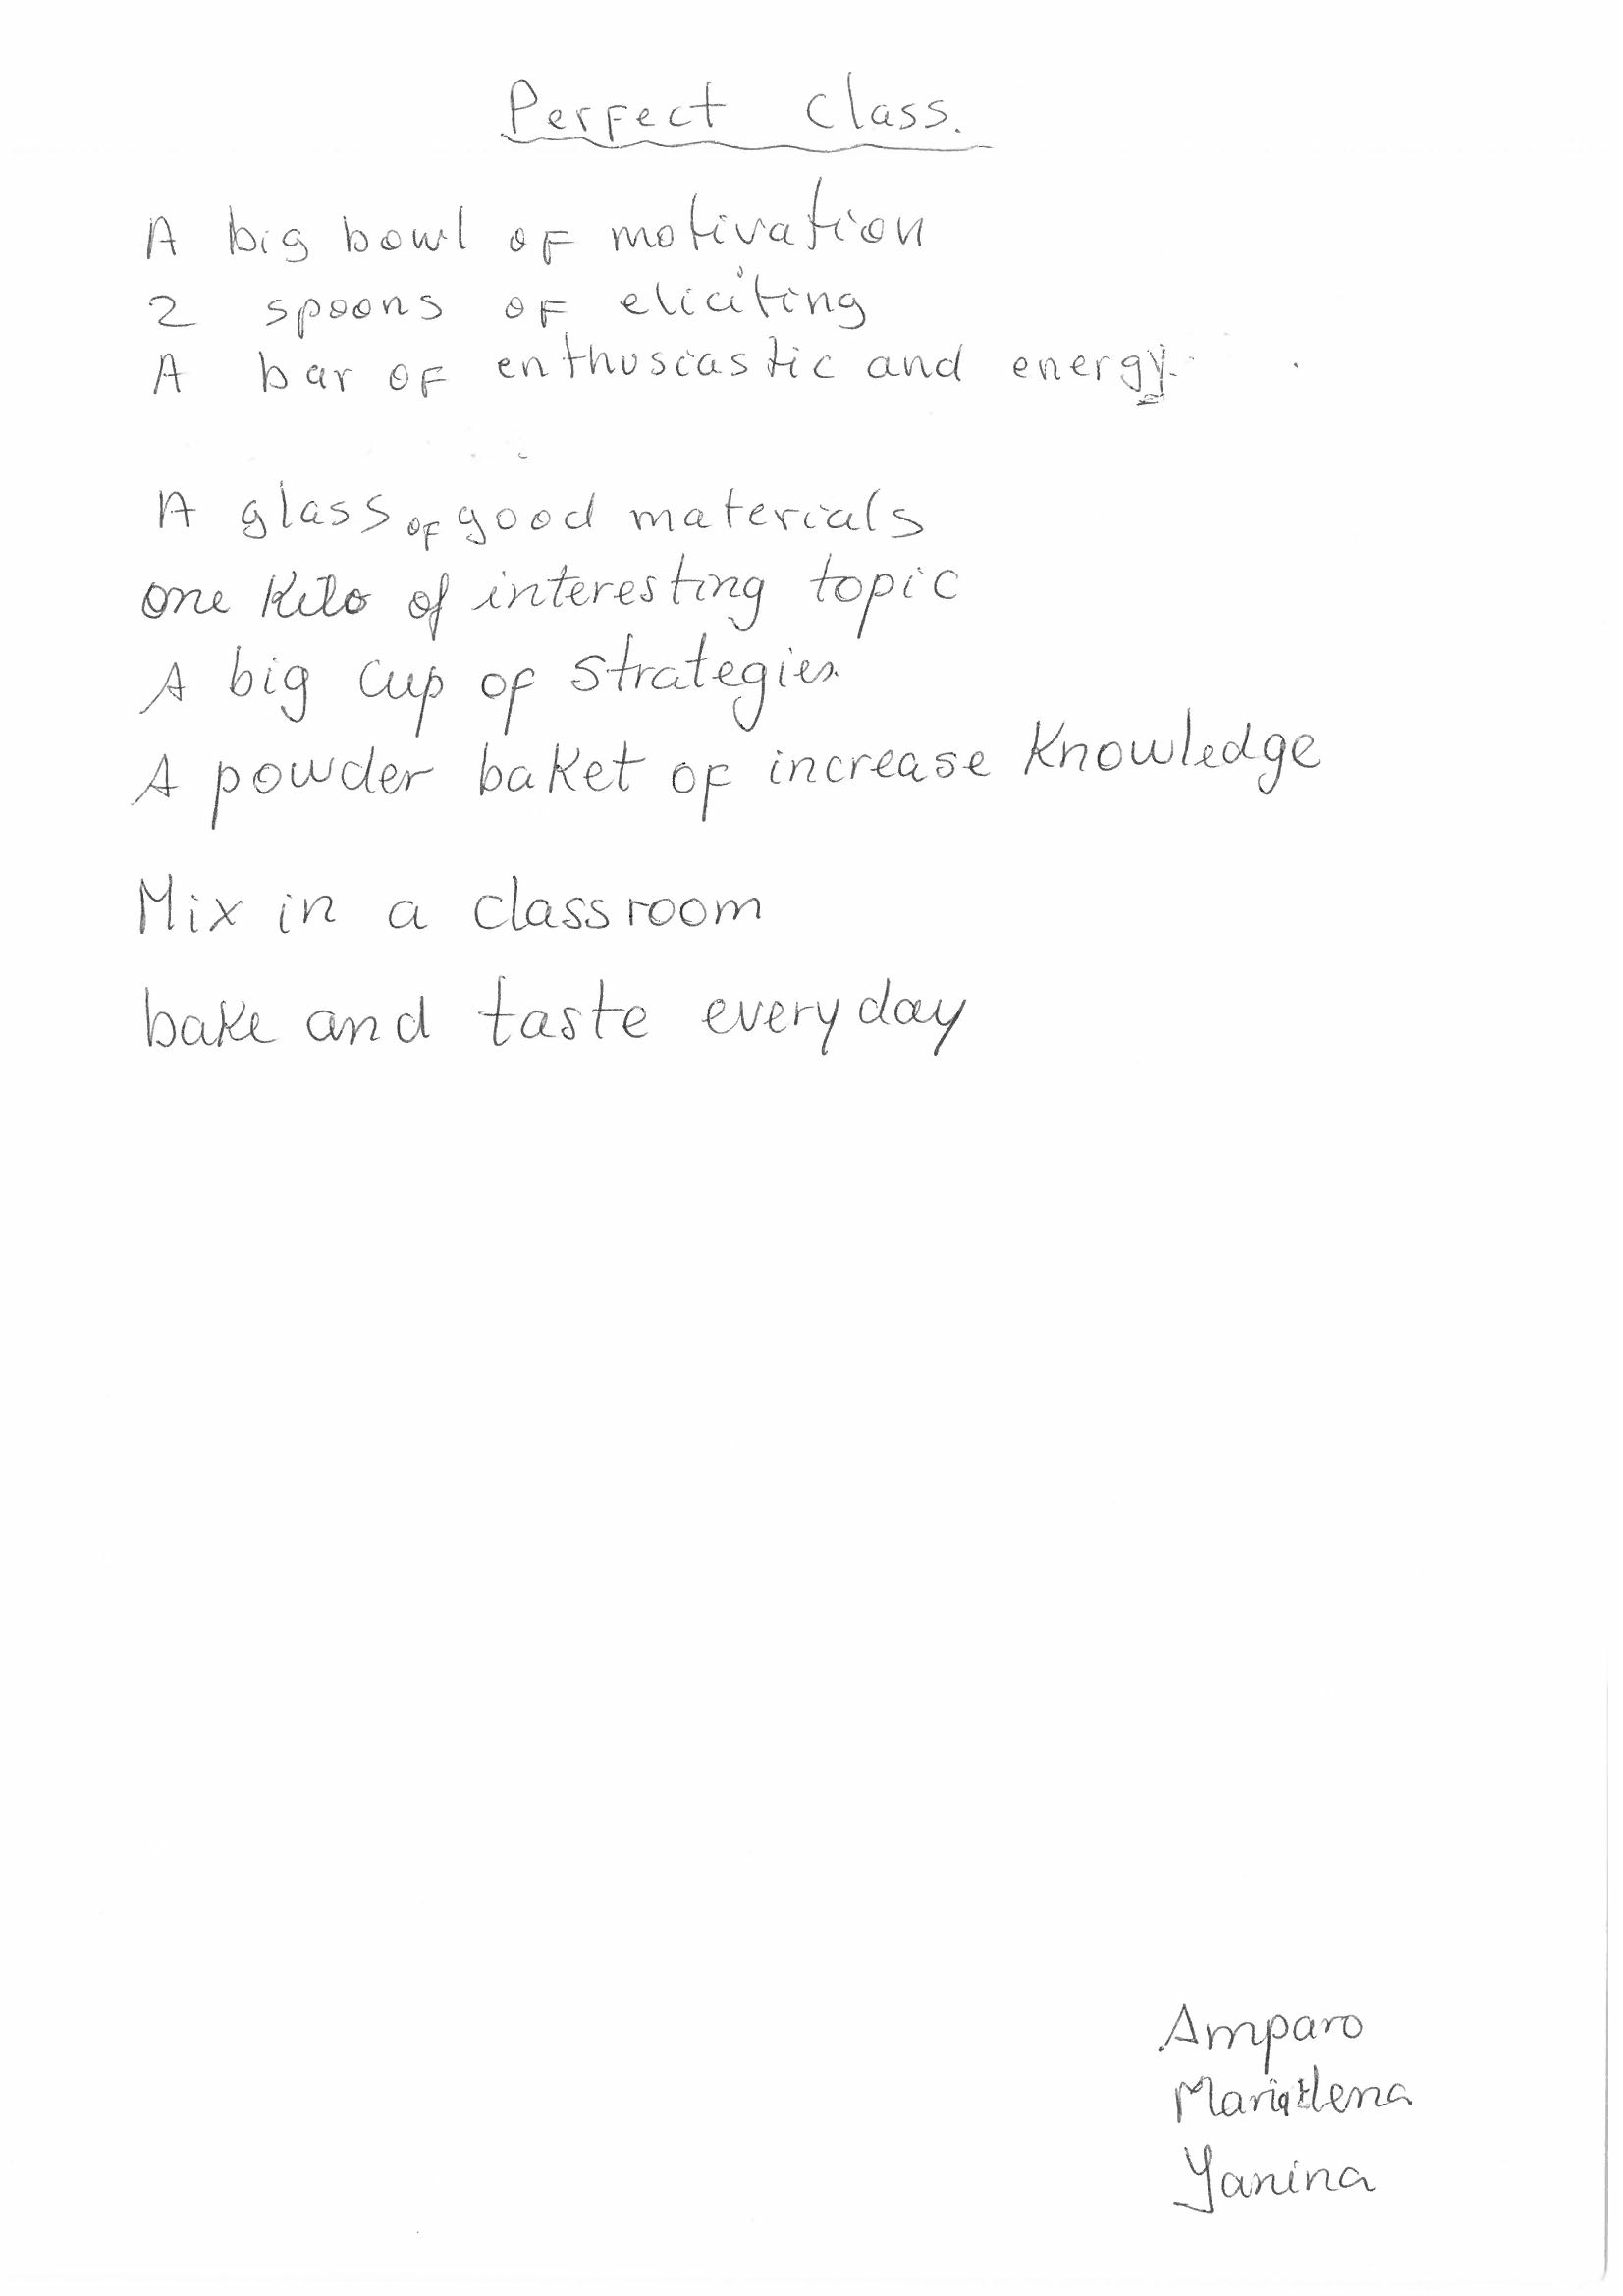 Perfect Class.
A big bowl of motivation
2 spoons of eliciting
A bar of enthusiastic and energy.
A glass of good materials
one Kilo of interesting topic
A big cup of strategies
A powder baket of increase Knowledge
Mix in a classroom
bake and taste everyday
Amparo
Maria Elena
Yanina